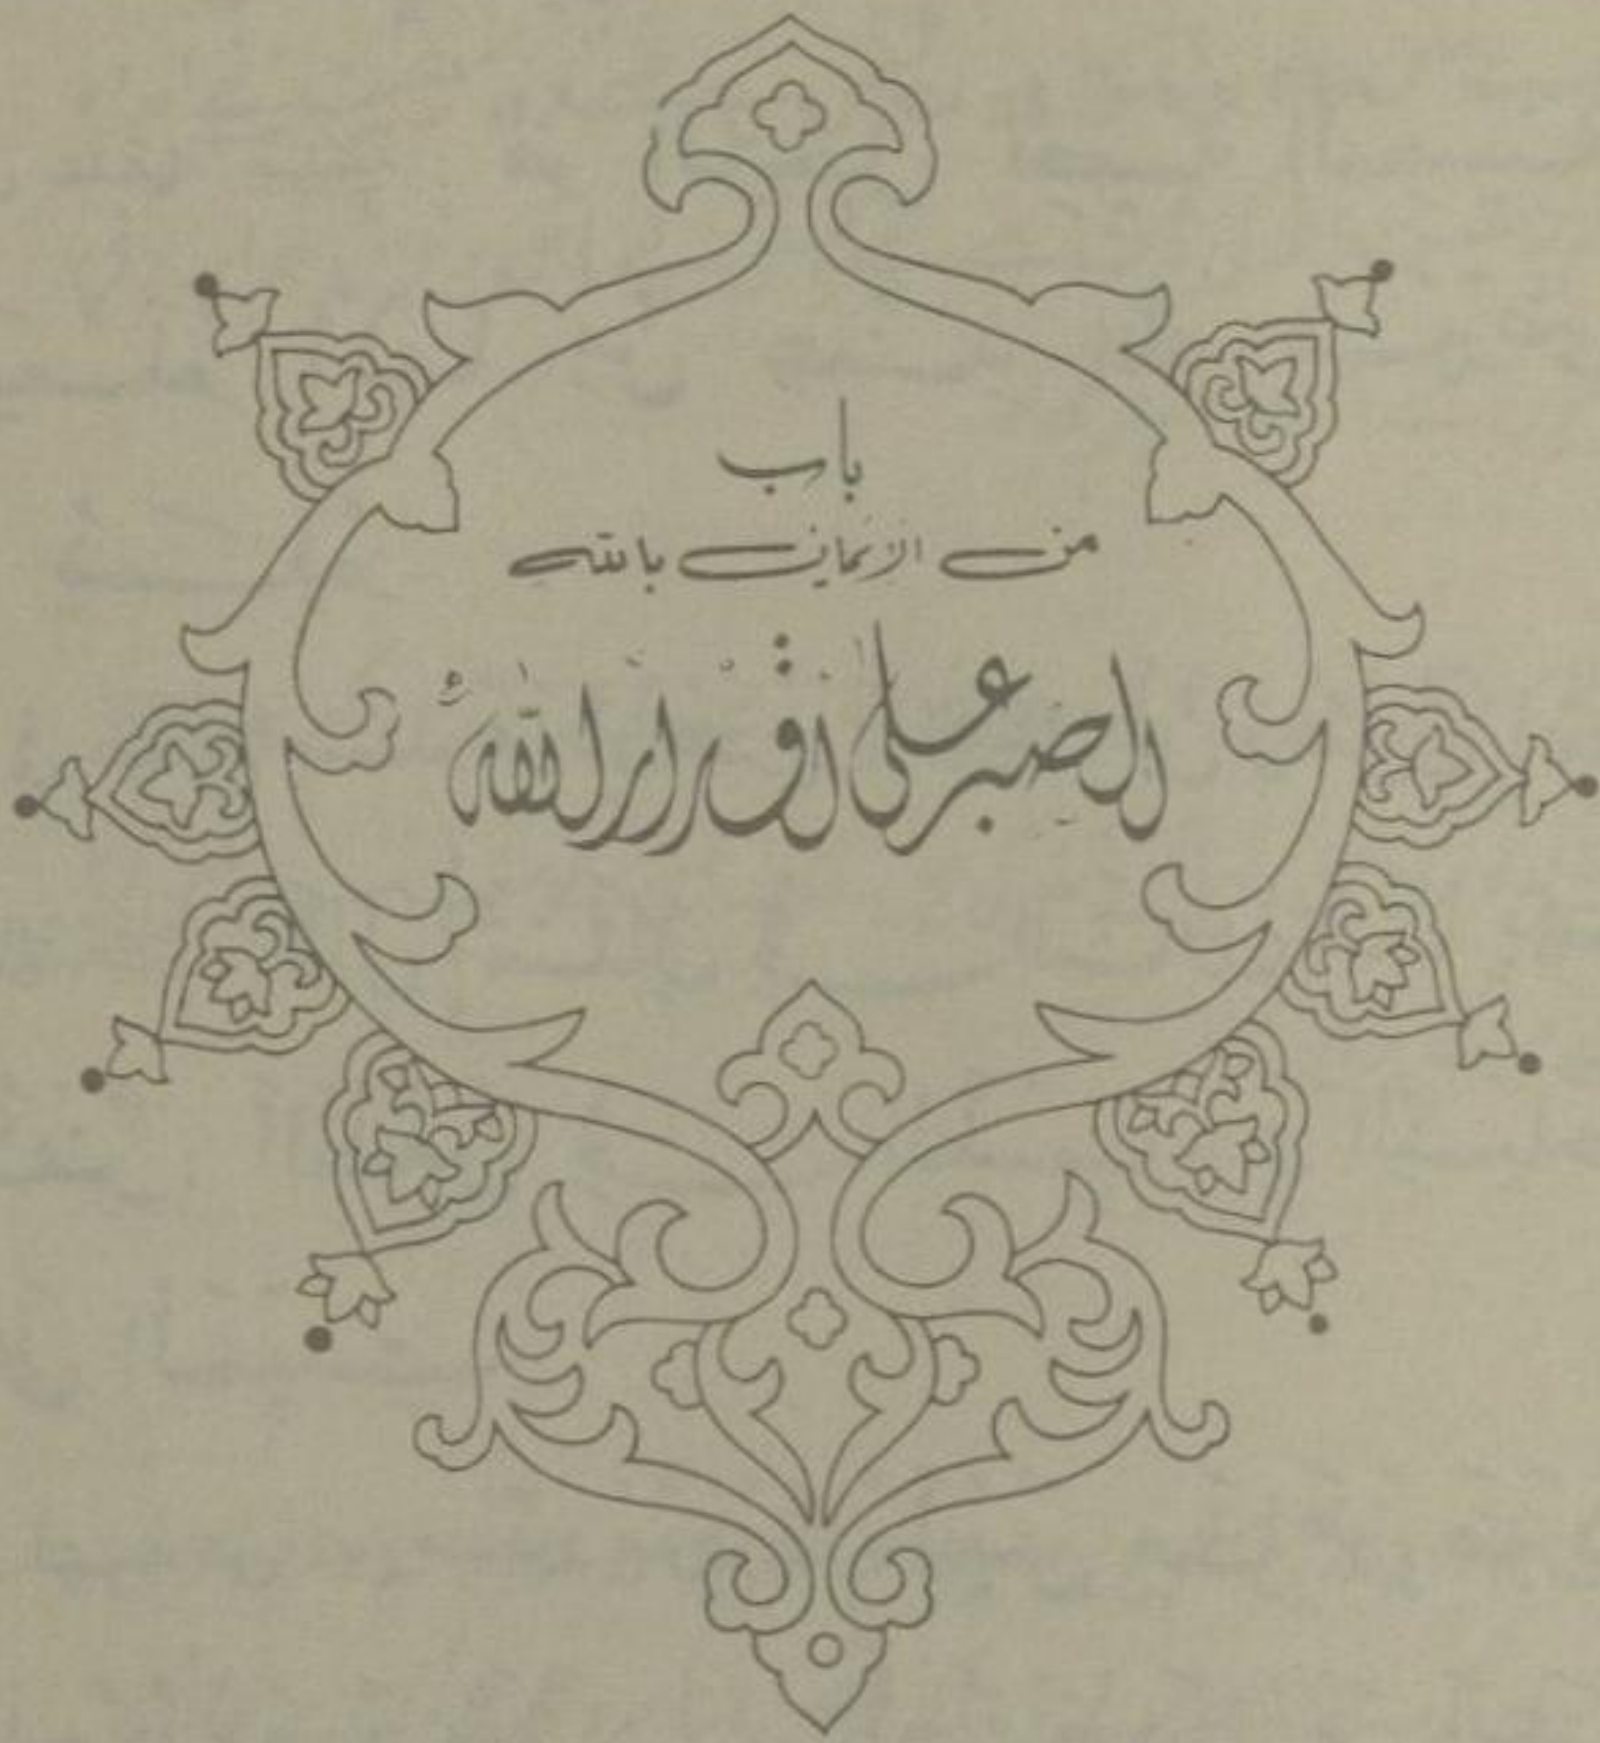 باب
من الإيمان بالله
الصبر على أقدار الله